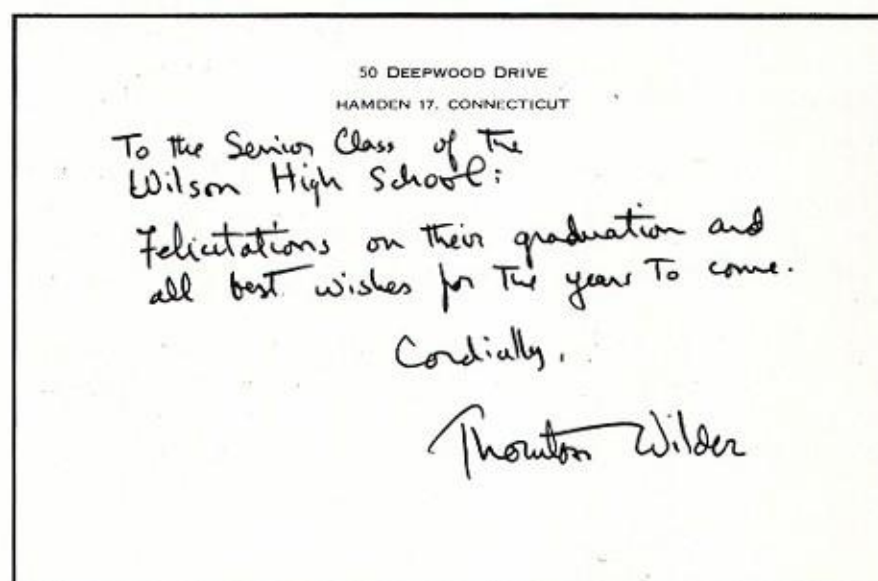 50 DEEPWOOD DRIVE
HAMDEN 17, CONNECTICUT
To the Senior Class of the
Wilson High School:
Felicitations on their graduation and
all best wishes for the years to come.
Cordially,
Thornton Wilder